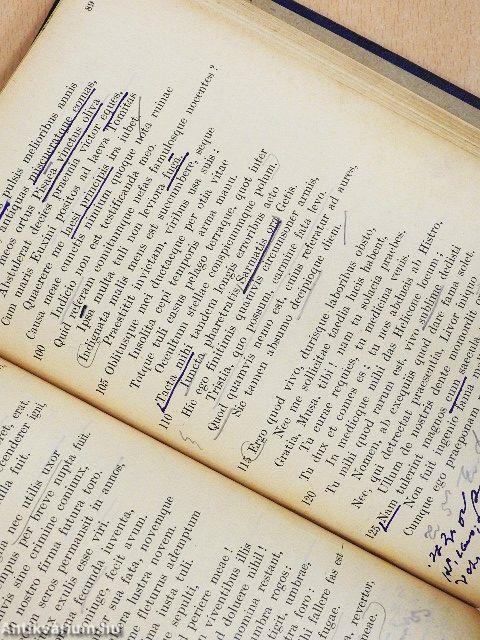 89
melioribus annis
antiquas miscueratque comas,
meos ortus Pisaea vinctus oliva
Abstulerat decies praemia victor eques,
Cum maris Euxini positos ad laeva Tomitas
Quaerere me laesi principis ira iubet.
Causa meae cunctis nimium quoque nota ruinae
100 Indicio non est testificanda meo.
Quid referam comitumque nefas famulosque nocentes?
Ipsa multa tuli non leviora fuga.
Indignata malis mens est succumbere seque
Praestitit invictam, viribus usa suis;
105 Oblitusque mei ductaeque per otia vitae
Insolita cepi temporis arma manu.
Totque tuli casus pelago terraque, quot inter
Occultum stellae conspicuumque polum.
Tacta mihi tandem longis erroribus acto
110 Iuncta pharetratis Sarmatis ora Getis.
Hic ego finitimis quamvis circumsoner armis,
Tristia, quo possum, carmine fata levo.
Quod quamvis nemo est, cuius referatur ad aures,
Sic tamen absumo decipioque diem.
115 Ergo quod vivo, durisque laboribus obsto,
Nec me sollicitae taedia lucis habent,
Gratia, Musa, tibi! nam tu solacia praebes,
Tu curae requies, tu medicina venis;
Tu dux et comes es; tu nos abducis ab Histro,
120 In medioque mihi das Helicone locum;
Tu mihi quod rarum est, vivo sublime dedisti
Nomen, ab exequiis quod dare fama solet.
Nec, qui detrectat praesentia, Livor iniquo
Ullum de nostris dente momordit
125 Nam tulerint magnos cum saecula
Non fuit ingenio fama
Cumque ego praeponam
erat,
accenderer igni,
fuit.
nec utilis uxor
per breve nupta fuit.
sine crimine coniunx,
nostro firma futura toro.
permansit in annos,
exulis esse viri.
fecunda iuventa,
fecit avum.
sua fata, novemque
lustra novem.
fleturus ademptum
iusta tuli.
sepulti,
perire meae!
doluere nihil!
viventibus illis
nomina restant,
rogos:
umbrae,
fallere fas est
revertor,
Antikvarium.hu